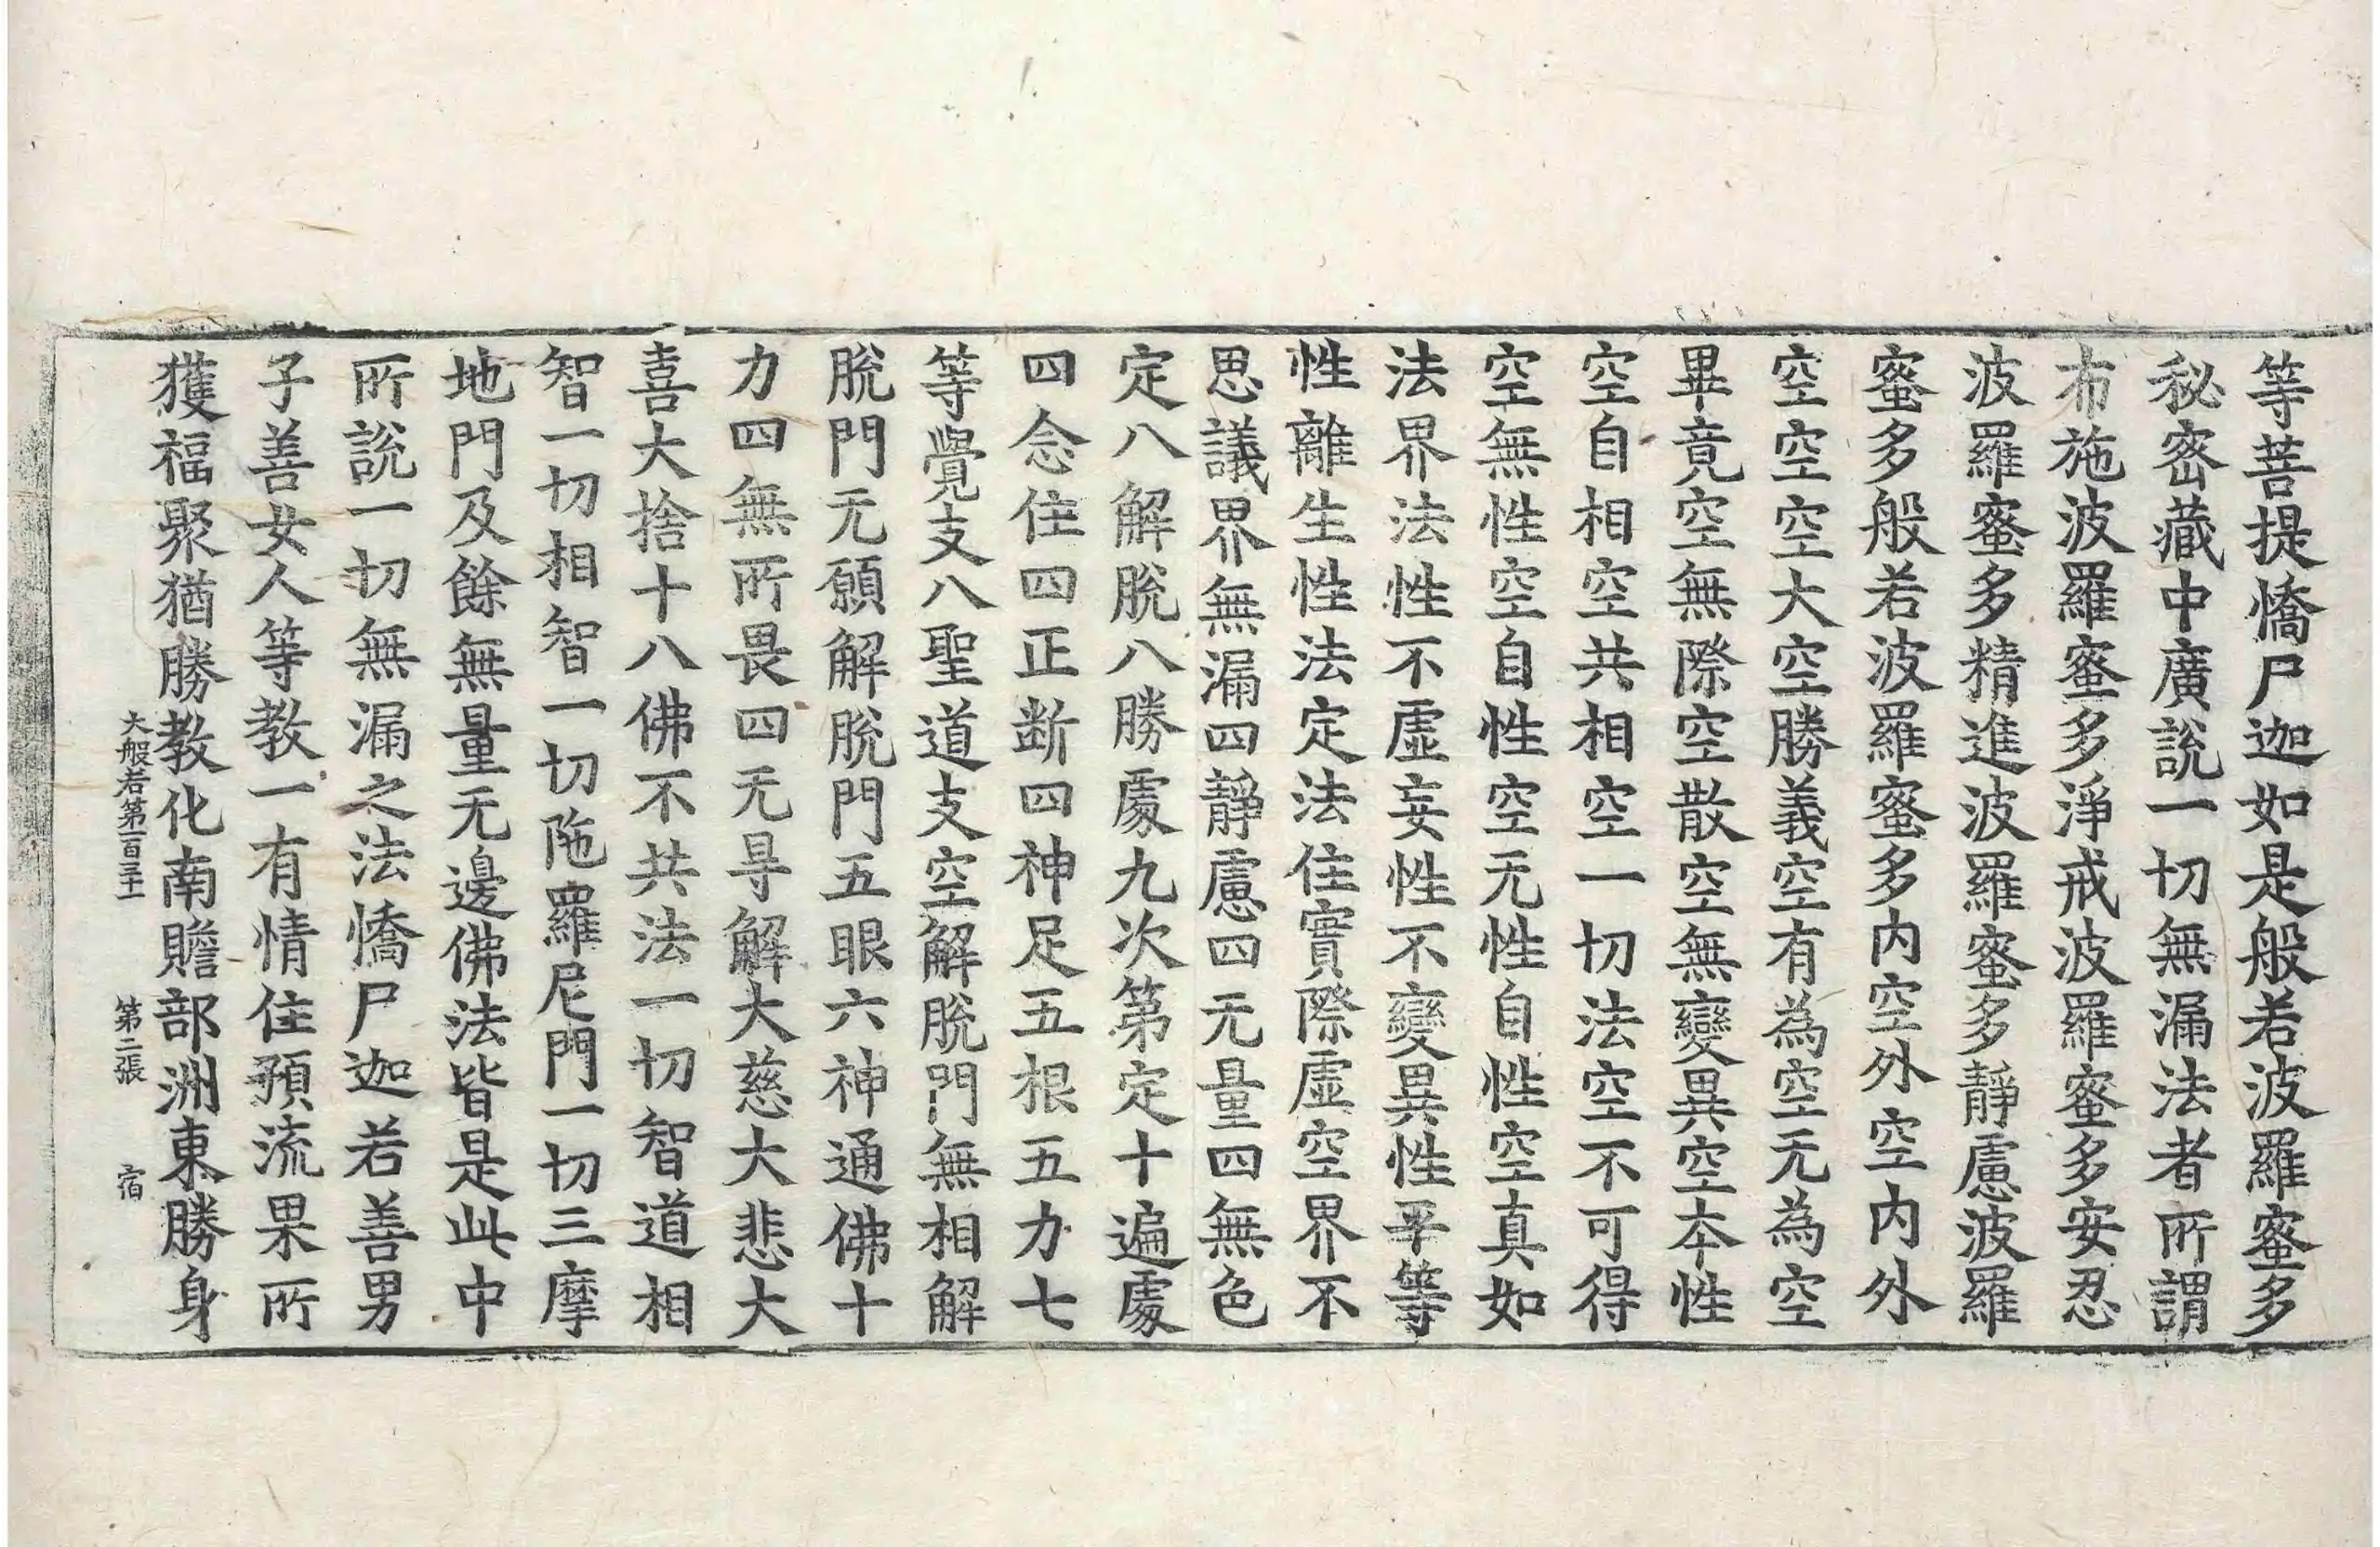 等菩提憍尸迦如是般若波羅蜜多
秘密藏中廣說一切無漏法者所謂
布施波羅蜜多淨戒波羅蜜多安忍
波羅蜜多精進波羅蜜多靜慮波羅
蜜多般若波羅蜜多内空外空内外
空空空大空勝義空有為空无為空
畢竟空無際空散空無變異空本性
空自相空共相空一切法空不可得
空無性空自性空无性自性空真如
法界法性不虛妄性不變異性平等
性離生性法定法住實際虛空界不
思議界無漏四靜慮四无量四無色
定八解脫八勝處九次第定十遍處
四念住四正断四神足五根五力七
等覺支八聖道支空解脫門無相解
脫門无願解脫門五眼六神通佛十
力四無所畏四无㝵解大慈大悲大
喜大捨十八佛不共法一切智道相
智一切相智一切陁羅尼門一切三摩
地門及餘無量无邊佛法皆是此中
所說一切無漏之法憍尸迦若善男
子善女人等教一有情住預流果所
獲福聚猶勝教化南贍部洲東勝身
大般若第一百三十一 第二張 宿